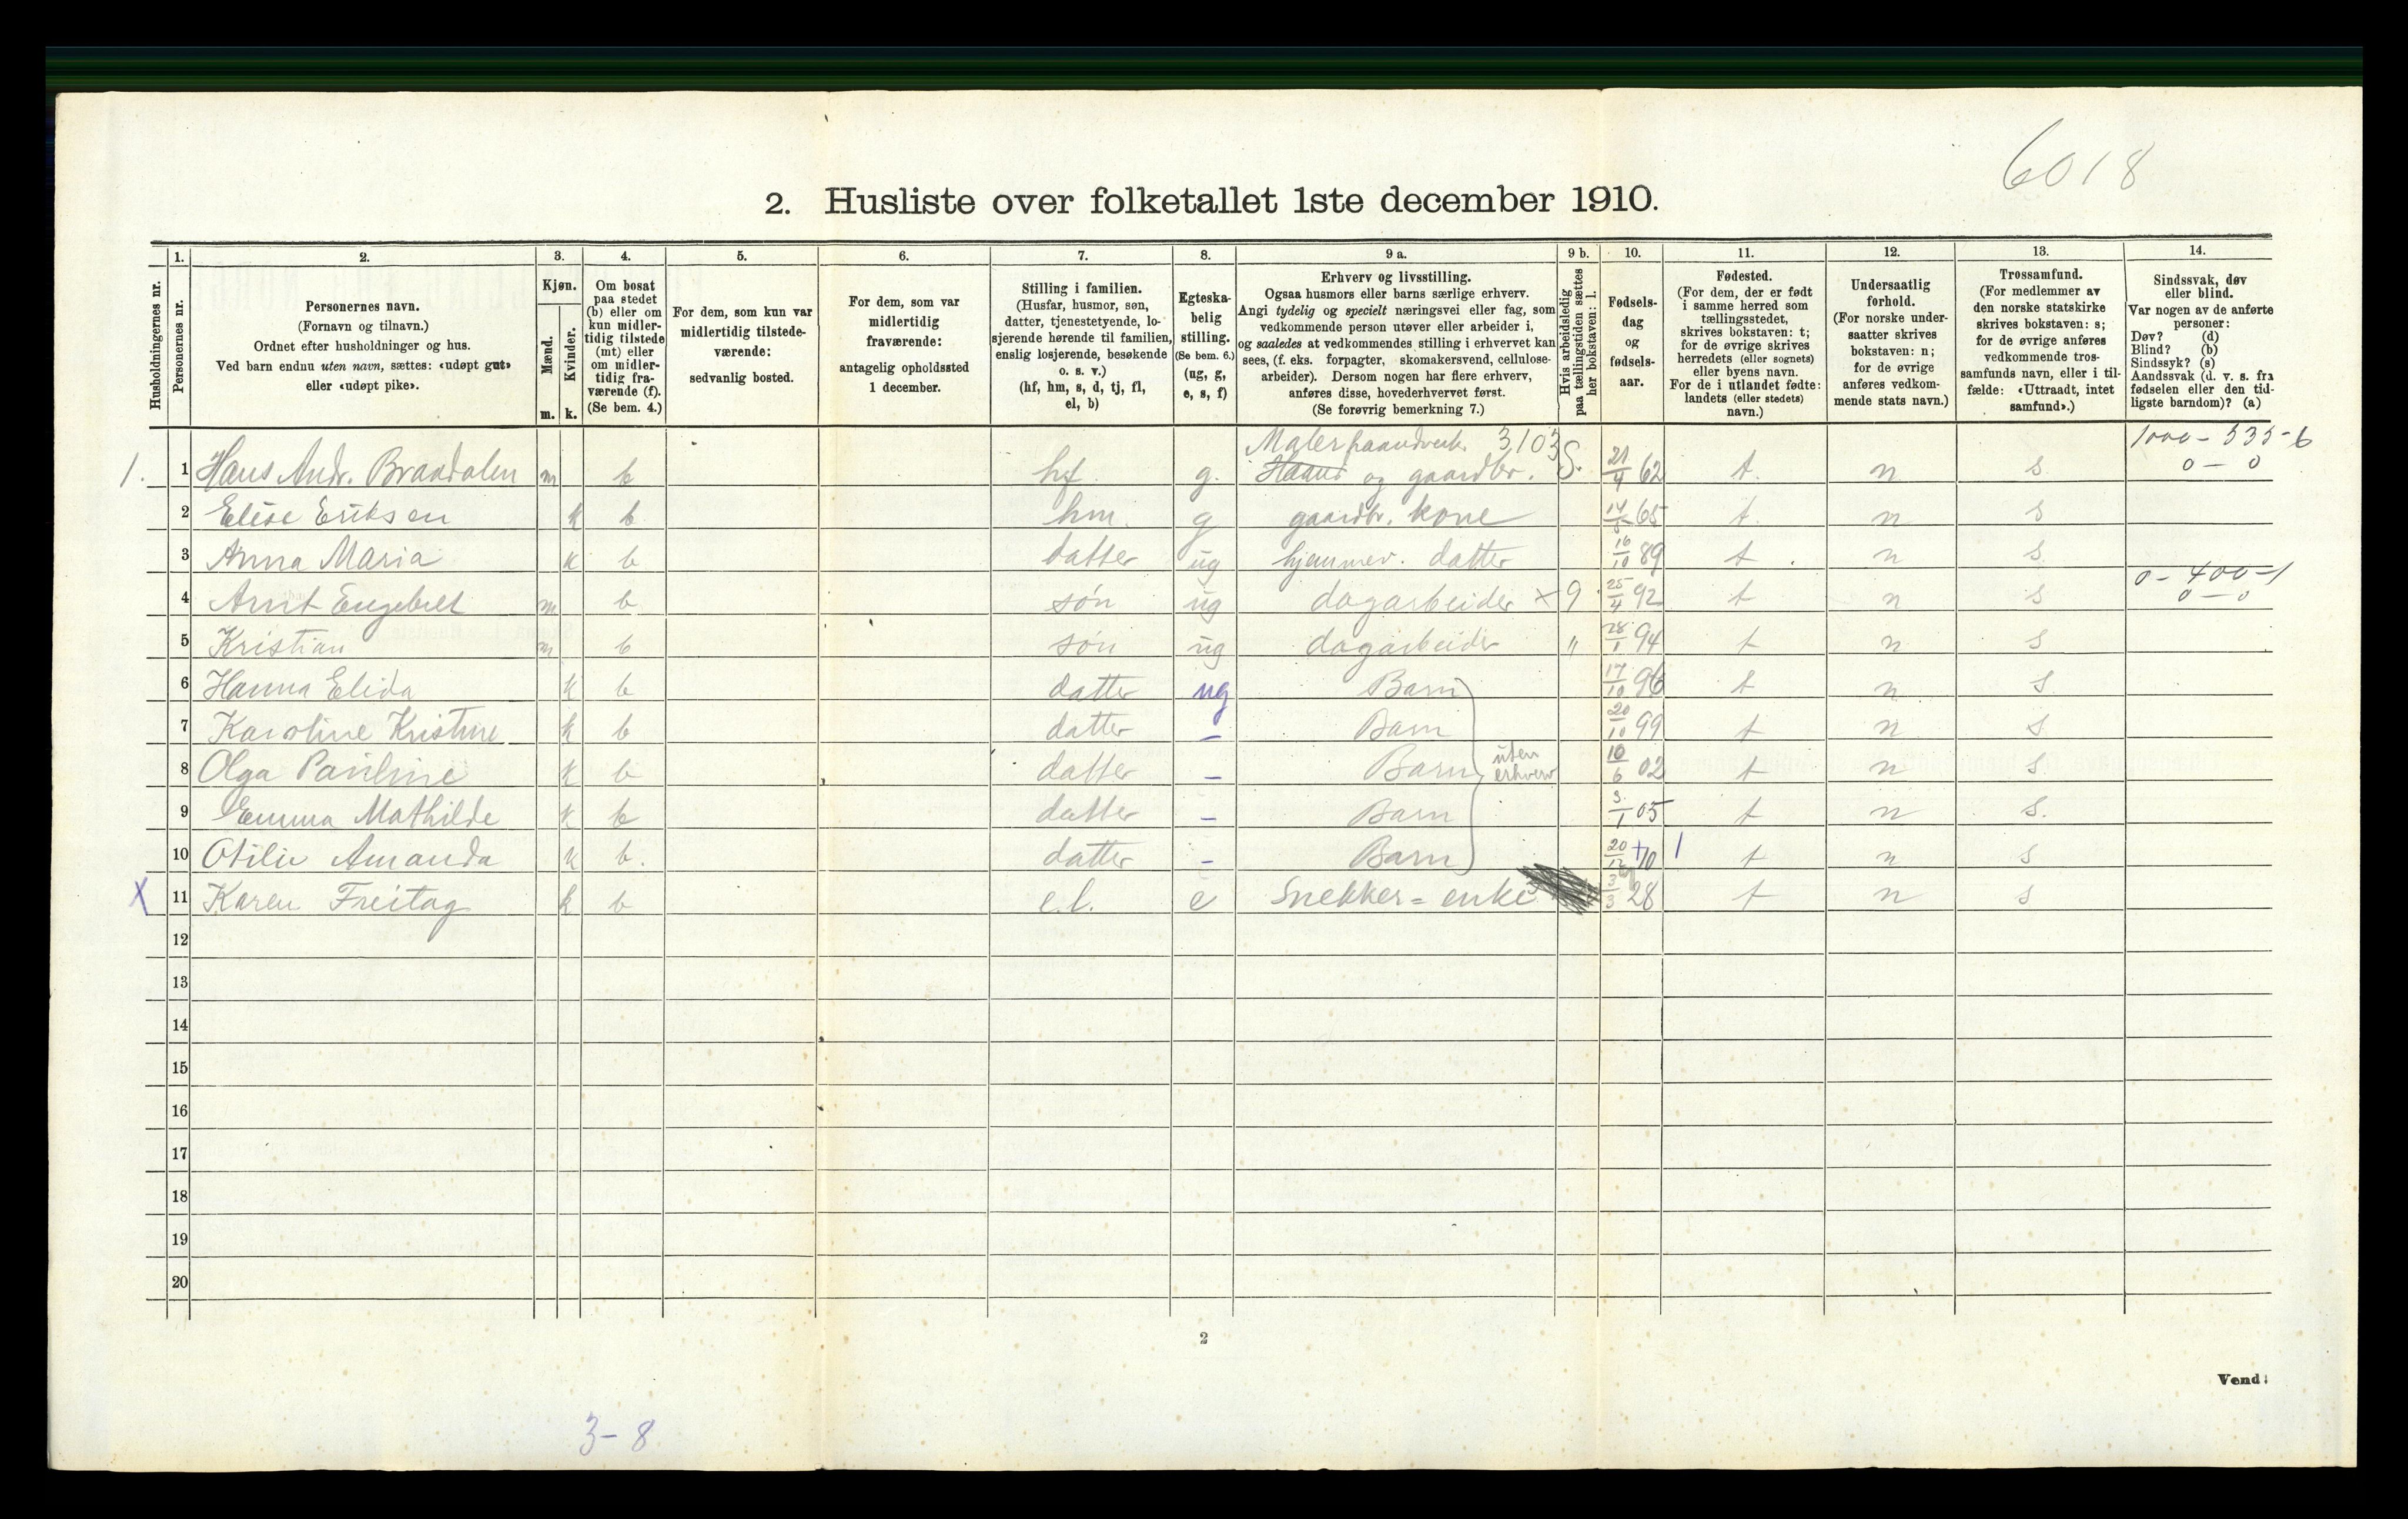 6018
2. Husliste over folketallet 1ste december 1910.
Husholdningernes nr.
1. Personernes nr.
2. Personernes navn. (Fornavn og tilnavn.) Ordnet efter husholdninger og hus. Ved barn endnu uten navn, sættes: «udøpt gut» eller «udøpt pike».
3. Kjøn. Mænd. m. Kvinder. k.
4. Om bosat paa stedet (b) eller om kun midlertidig tilstede (mt) eller om midlertidig fraværende (f). (Se bem. 4.)
5. For dem, som kun var midlertidig tilstedeværende: sedvanlig bosted.
6. For dem, som var midlertidig fraværende: antagelig opholdssted 1 december.
7. Stilling i familien. (Husfar, husmor, søn, datter, tjenestetyende, losjerende hørende til familien, enslig losjerende, besøkende o. s. v.) (hf, hm, s, d, tj, fl, el, b)
8. Egteskabelig stilling. (Se bem. 6.) (ug, g, e, s, f)
9 a. Erhverv og livsstilling. Ogsaa husmors eller barns særlige erhverv. Angi tydelig og specielt næringsvei eller fag, som vedkommende person utøver eller arbeider i, og saaledes at vedkommendes stilling i erhvervet kan sees, (f. eks. forpagter, skomakersvend, cellulosearbeider). Dersom nogen har flere erhverv, anføres disse, hovederhvervet først. (Se forøvrig bemerkning 7.)
9 b. Hvis arbeidsledig paa tællingstiden sættes her bokstaven: l.
10. Fødselsdag og fødselsaar.
11. Fødested. (For dem, der er født i samme herred som tællingsstedet, skrives bokstaven: t; for de øvrige skrives herredets (eller sognets) eller byens navn. For de i utlandet fødte: landets (eller stedets) navn.)
12. Undersaatlig forhold. (For norske undersaatter skrives bokstaven: n; for de øvrige anføres vedkommende stats navn.)
13. Trossamfund. (For medlemmer av den norske statskirke skrives bokstaven: s; for de øvrige anføres vedkommende trossamfunds navn, eller i tilfælde: «Uttraadt, intet samfund».)
14. Sindssvak, døv eller blind. Var nogen av de anførte personer: Døv? (d) Blind? (b) Sindssyk? (s) Aandssvak (d. v. s. fra fødselen eller den tidligste barndom)? (a)
Maler 3103 1000 - 535-6
1. 1 Hans Andr. Brandalen m b hf. g. og gaardbr. S. 21/4 62 t. n s 0 - 0
2 Elise Eriksen k b hm. g gaardbr. kone 14/5 65 t. n s
3 Anna Maria k b datter ug hjemmev. datter 16/10 89 t n s
0 - 400-1
4 Arnt Engebret m b søn ug dagarbeider x 9 25/4 92 t n s 0 - 0
5 Kristian m b søn ug dagarbeider " 28/1 94 t n s
6 Hanna Elida k b datter ug Barn 17/10 96 t n s
7 Karoline Kristine k b datter - Barn 20/10 99 t n s
8 Olga Pauline k b datter - Barn uten erhverv 10/6 02 t n s
9 Emma Mathilde k b datter - Barn 3/1 05 t n s.
10 Otilie Amanda k b. datter - Barn 20/12 10 t n s
X 11 Karen Freitag k b e.l. e Snekker = enke 3/3 28 t n s
12
13
14
15
16
17
18
19
20
2
Vend!
3-8